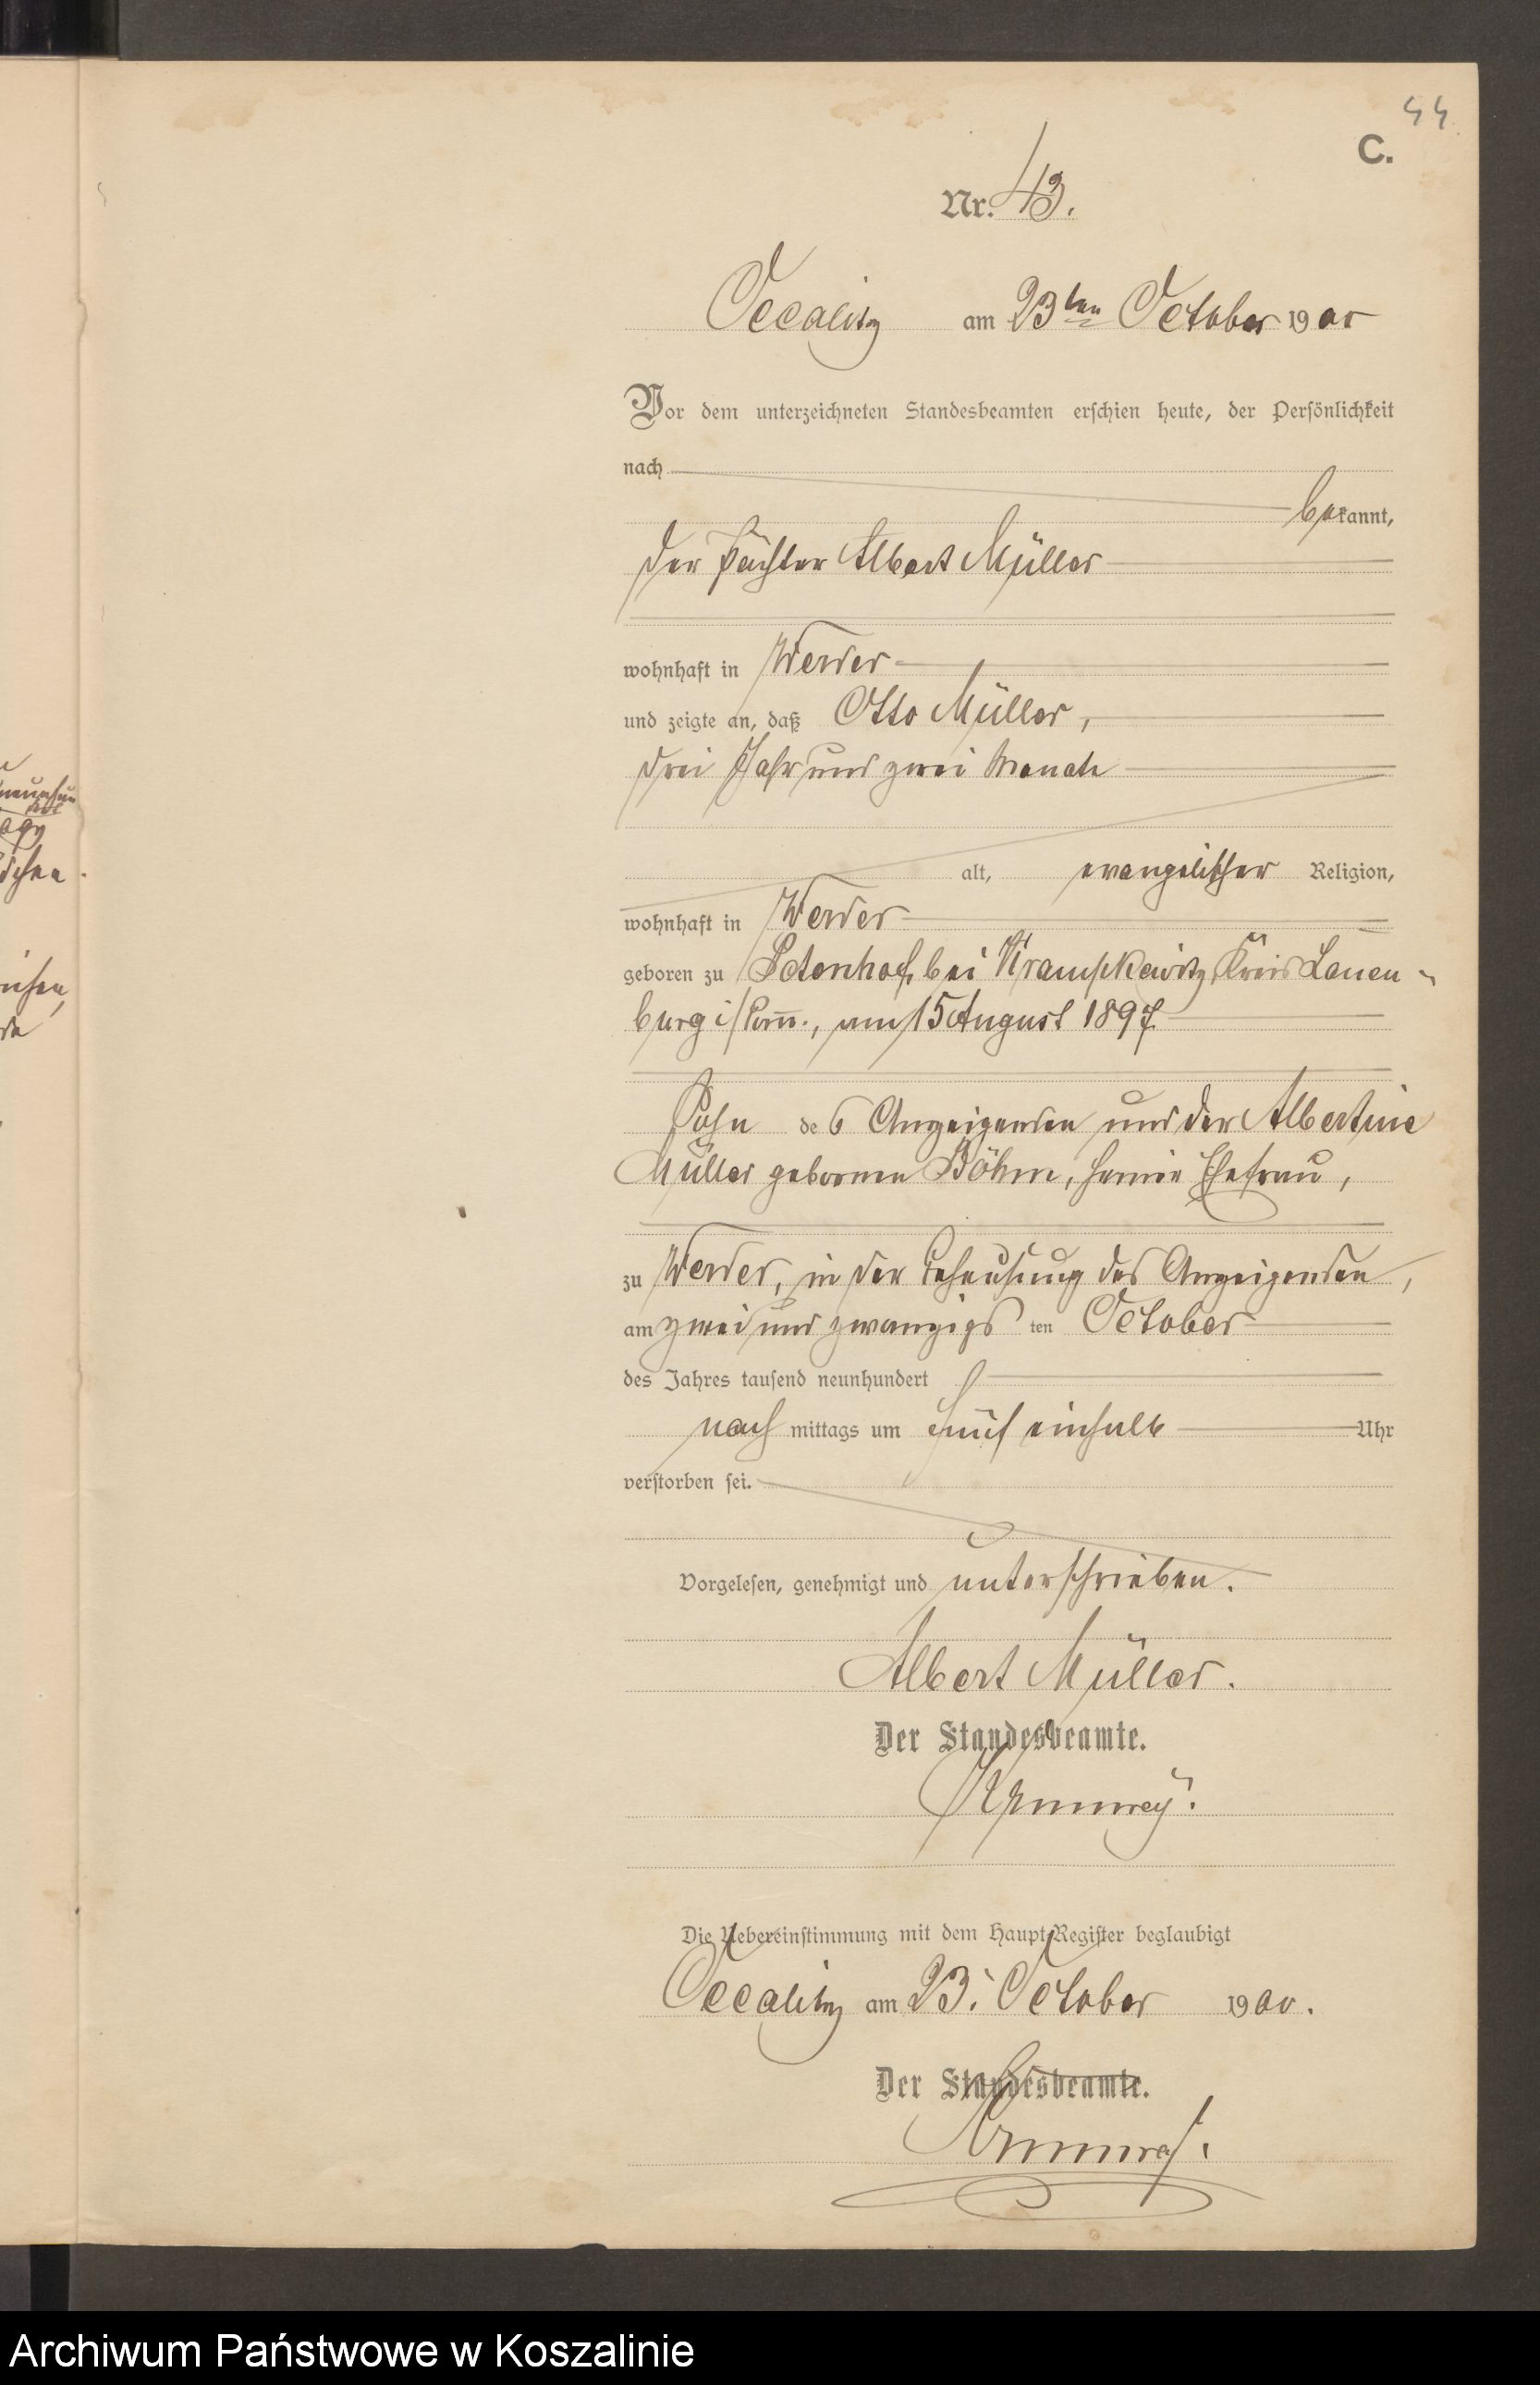 44
C.
Nr. 43.
Occalitz am 23ten October 1900
Vor dem unterzeichneten Standesbeamten erschien heute, der Persönlichkeit
nach
bekannt,
der Pächter Albert Müller
wohnhaft in Werder
und zeigte an, daß Otto Müller,
drei Jahr und zwei Monate
alt, evangelischer Religion,
wohnhaft in Werder
geboren zu bei Krampkewitz Kreis Lauen-
burg i/Pom., am 15 August 1897
Sohn des Anzeigenden und der Albertine
Müller gebornen Böhm, seiner Ehefrau,
zu Werder, in der Behausung des Anzeigenden,
am zwei und zwanzigs ten October
des Jahres tausend neunhundert
nach mittags um fünf einhalb Uhr
verstorben sei.
Vorgelesen, genehmigt und unterschrieben.
Albert Müller.
Der Standesbeamte.
Die Uebereinstimmung mit dem Haupt-Register beglaubigt
Occalitz am 23. October 1900.
Der Standesbeamte.
Archiwum Państwowe w Koszalinie